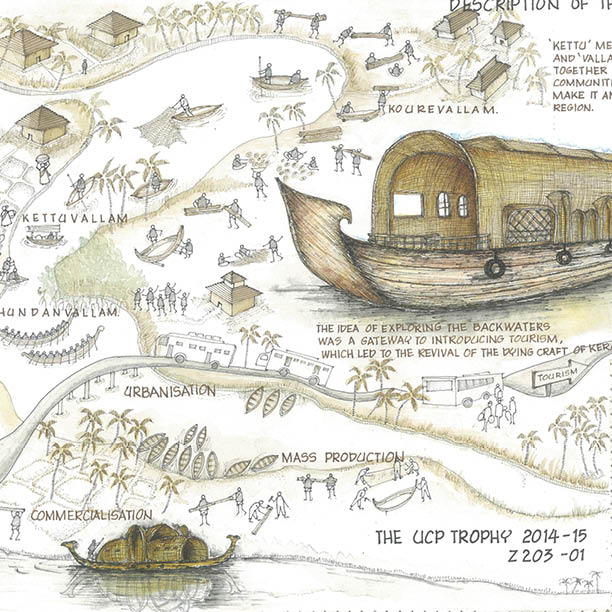 DESCRIPTION OF TH
'KETTU' ME
AND 'VALLA
TOGETHER
COMMUNITI
MAKE IT AN
REGION.
KOUREVALLAM.
KETTUVALLAM
HUNDANVALLAM.
THE IDEA OF EXPLORING THE BACKWATERS
WAS A GATEWAY TO INTRODUCING TOURISM,
WHICH LED TO THE REVIVAL OF THE DYING CRAFT OF KER
TOURISM
URBANISATION
MASS PRODUCTION
COMMERCIALISATION
THE UCP TROPHY 2014-15
Z203 -01